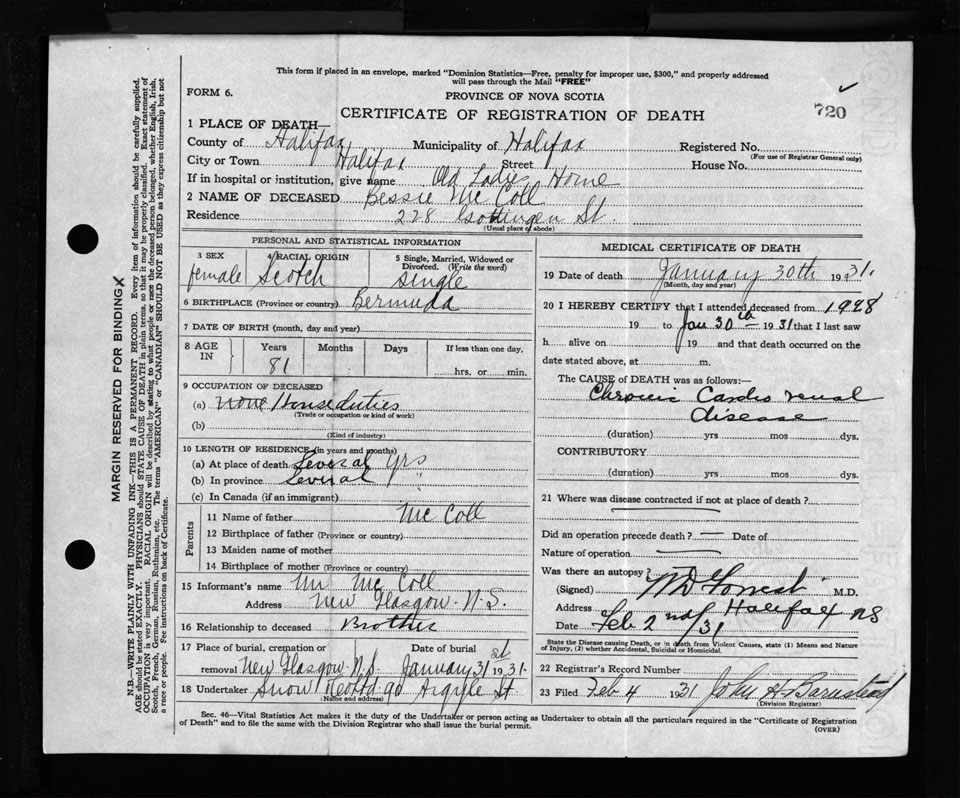 This form if placed in an envelope, marked "Dominion Statistics—Free, penalty for improper use, $300," and properly addressed
will pass through the Mail "FREE"
FORM 6.
PROVINCE OF NOVA SCOTIA
720
CERTIFICATE OF REGISTRATION OF DEATH
1 PLACE OF DEATH—
County of Halifax Municipality of Halifax Registered No.
(For use of Registrar General only)
City or Town Halifax Street House No.
If in hospital or institution, give name Old Ladies Home
2 NAME OF DECEASED Bessie Mc Coll
Residence 228 Gottingen St.
(Usual place of abode)
PERSONAL AND STATISTICAL INFORMATION
3 SEX 4 RACIAL ORIGIN 5 Single, Married, Widowed or
Divorced. (Write the word)
female Scotch Single
6 BIRTHPLACE (Province or country) Bermuda
7 DATE OF BIRTH (month, day and year)
8 AGE IN Years Months Days If less than one day,
81 hrs. or min.
9 OCCUPATION OF DECEASED
(a) none House duties
(Trade or occupation or kind of work)
(b)
(Kind of industry)
10 LENGTH OF RESIDENCE (in years and months)
(a) At place of death Several yrs
(b) In province Several "
(c) In Canada (if an immigrant)
Parents
11 Name of father Mc Coll
12 Birthplace of father (Province or country)
13 Maiden name of mother
14 Birthplace of mother (Province or country)
15 Informant's name Mr Mc Coll
Address New Glasgow - N.S.
16 Relationship to deceased Brother
17 Place of burial, cremation or Date of burial
removal New Glasgow N.S. January 31st 1931.
18 Undertaker Snow & Co Ltd 90 Argyle St
(Name and address)
MEDICAL CERTIFICATE OF DEATH
19 Date of death January 30th 1931.
(Month, day and year)
20 I HEREBY CERTIFY that I attended deceased from 1928
19 to Jan 30th 1931 that I last saw
h alive on 19 and that death occurred on the
date stated above, at m.
The CAUSE of DEATH was as follows:—
Chronic Cardio renal
disease
(duration) yrs mos dys.
CONTRIBUTORY
(duration) yrs mos dys.
21 Where was disease contracted if not at place of death?
Did an operation precede death? — Date of
Nature of operation —
Was there an autopsy?
(Signed) WD Forrest M.D.
Address Halifax NS
Date Feb 2nd/31
State the Disease causing Death, or in death from Violent Causes, state (1) Means and Nature
of Injury, (2) whether Accidental, Suicidal or Homicidal.
22 Registrar's Record Number
23 Filed Feb 4 1931 John H Barnstead
(Division Registrar)
Sec. 46—Vital Statistics Act makes it the duty of the Undertaker or person acting as Undertaker to obtain all the particulars required in the "Certificate of Registration
of Death" and to file the same with the Division Registrar who shall issue the burial permit.
(OVER)
MARGIN RESERVED FOR BINDING
N.B.—WRITE PLAINLY WITH UNFADING INK—THIS IS A PERMANENT RECORD. Every item of information should be carefully supplied.
AGE should be stated EXACTLY. PHYSICIANS should STATE CAUSE OF DEATH in plain terms, so that it may be properly classified. Exact statement of
OCCUPATION is very important. RACIAL ORIGIN will be described by stating to what people or race the deceased person belonged, whether English, Irish,
Scotch, French, German, Russian, Ruthenian, etc. The terms "AMERICAN" or "CANADIAN" SHOULD NOT BE USED as they express citizenship but not
a race or people. See instructions on back of Certificate.